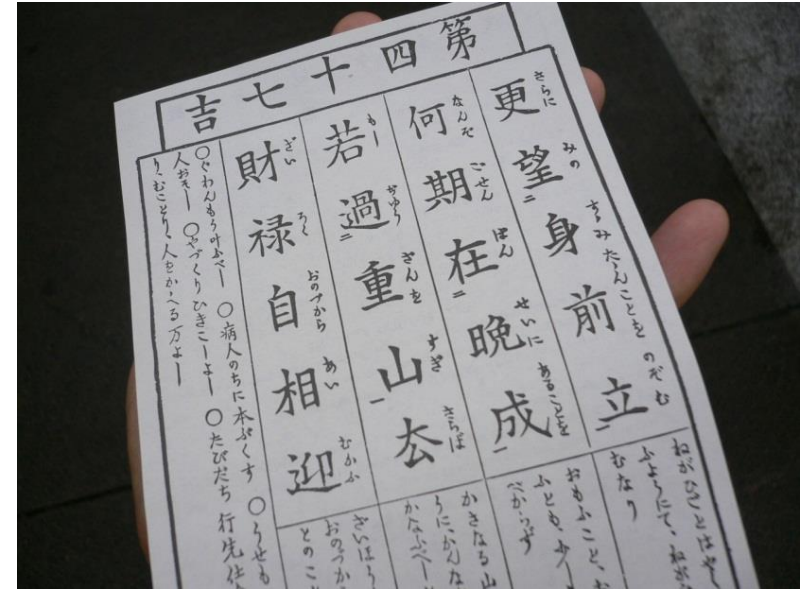 第四十七吉
更望身前立
さらに みの するみ たゝんことを のぞむ
何期在晩成
なんぞ ごせん ばん せいに あることを
若過重山去
もし すぎ さらば
財禄自相迎
ざい ろく おのづから あい むかふ
ねがひごとは
ふようにて、ねが
むなり
おもふこと、
ふとも、
べからず
かさなる山
うに、かんな
かなふべ
さいほう
おのづか
とのこ
○ぐわんもう叶ふべし ○病人のちに本ぷくす ○うせも
人おそし ○やづくりひきこしよし ○たびだち 行先仕
り、むことり、人をかゝへる万よし